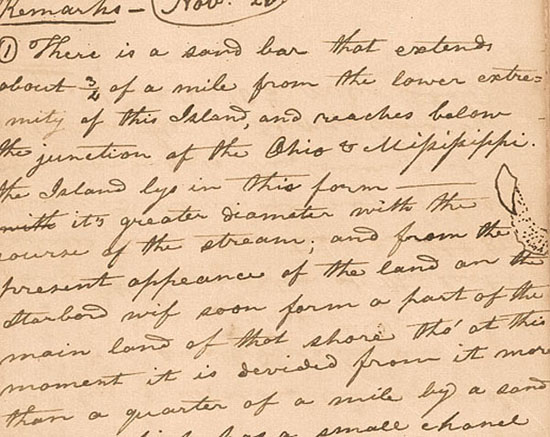 Remarks — Nov. 20
① There is a sand bar that extends
about 3/4 of a mile from the lower extre=
mity of this Island, and reaches below
the junction of the Ohio & Missippi.
the Island lys in this form —
with it's greater diameter with the
course of the stream; and from the
present appeance of the land on the
Starbord wif soon form a part of the
main land of that shore tho' at this
moment it is devided from it more
than a quarter of a mile by a sand
has a small chanel